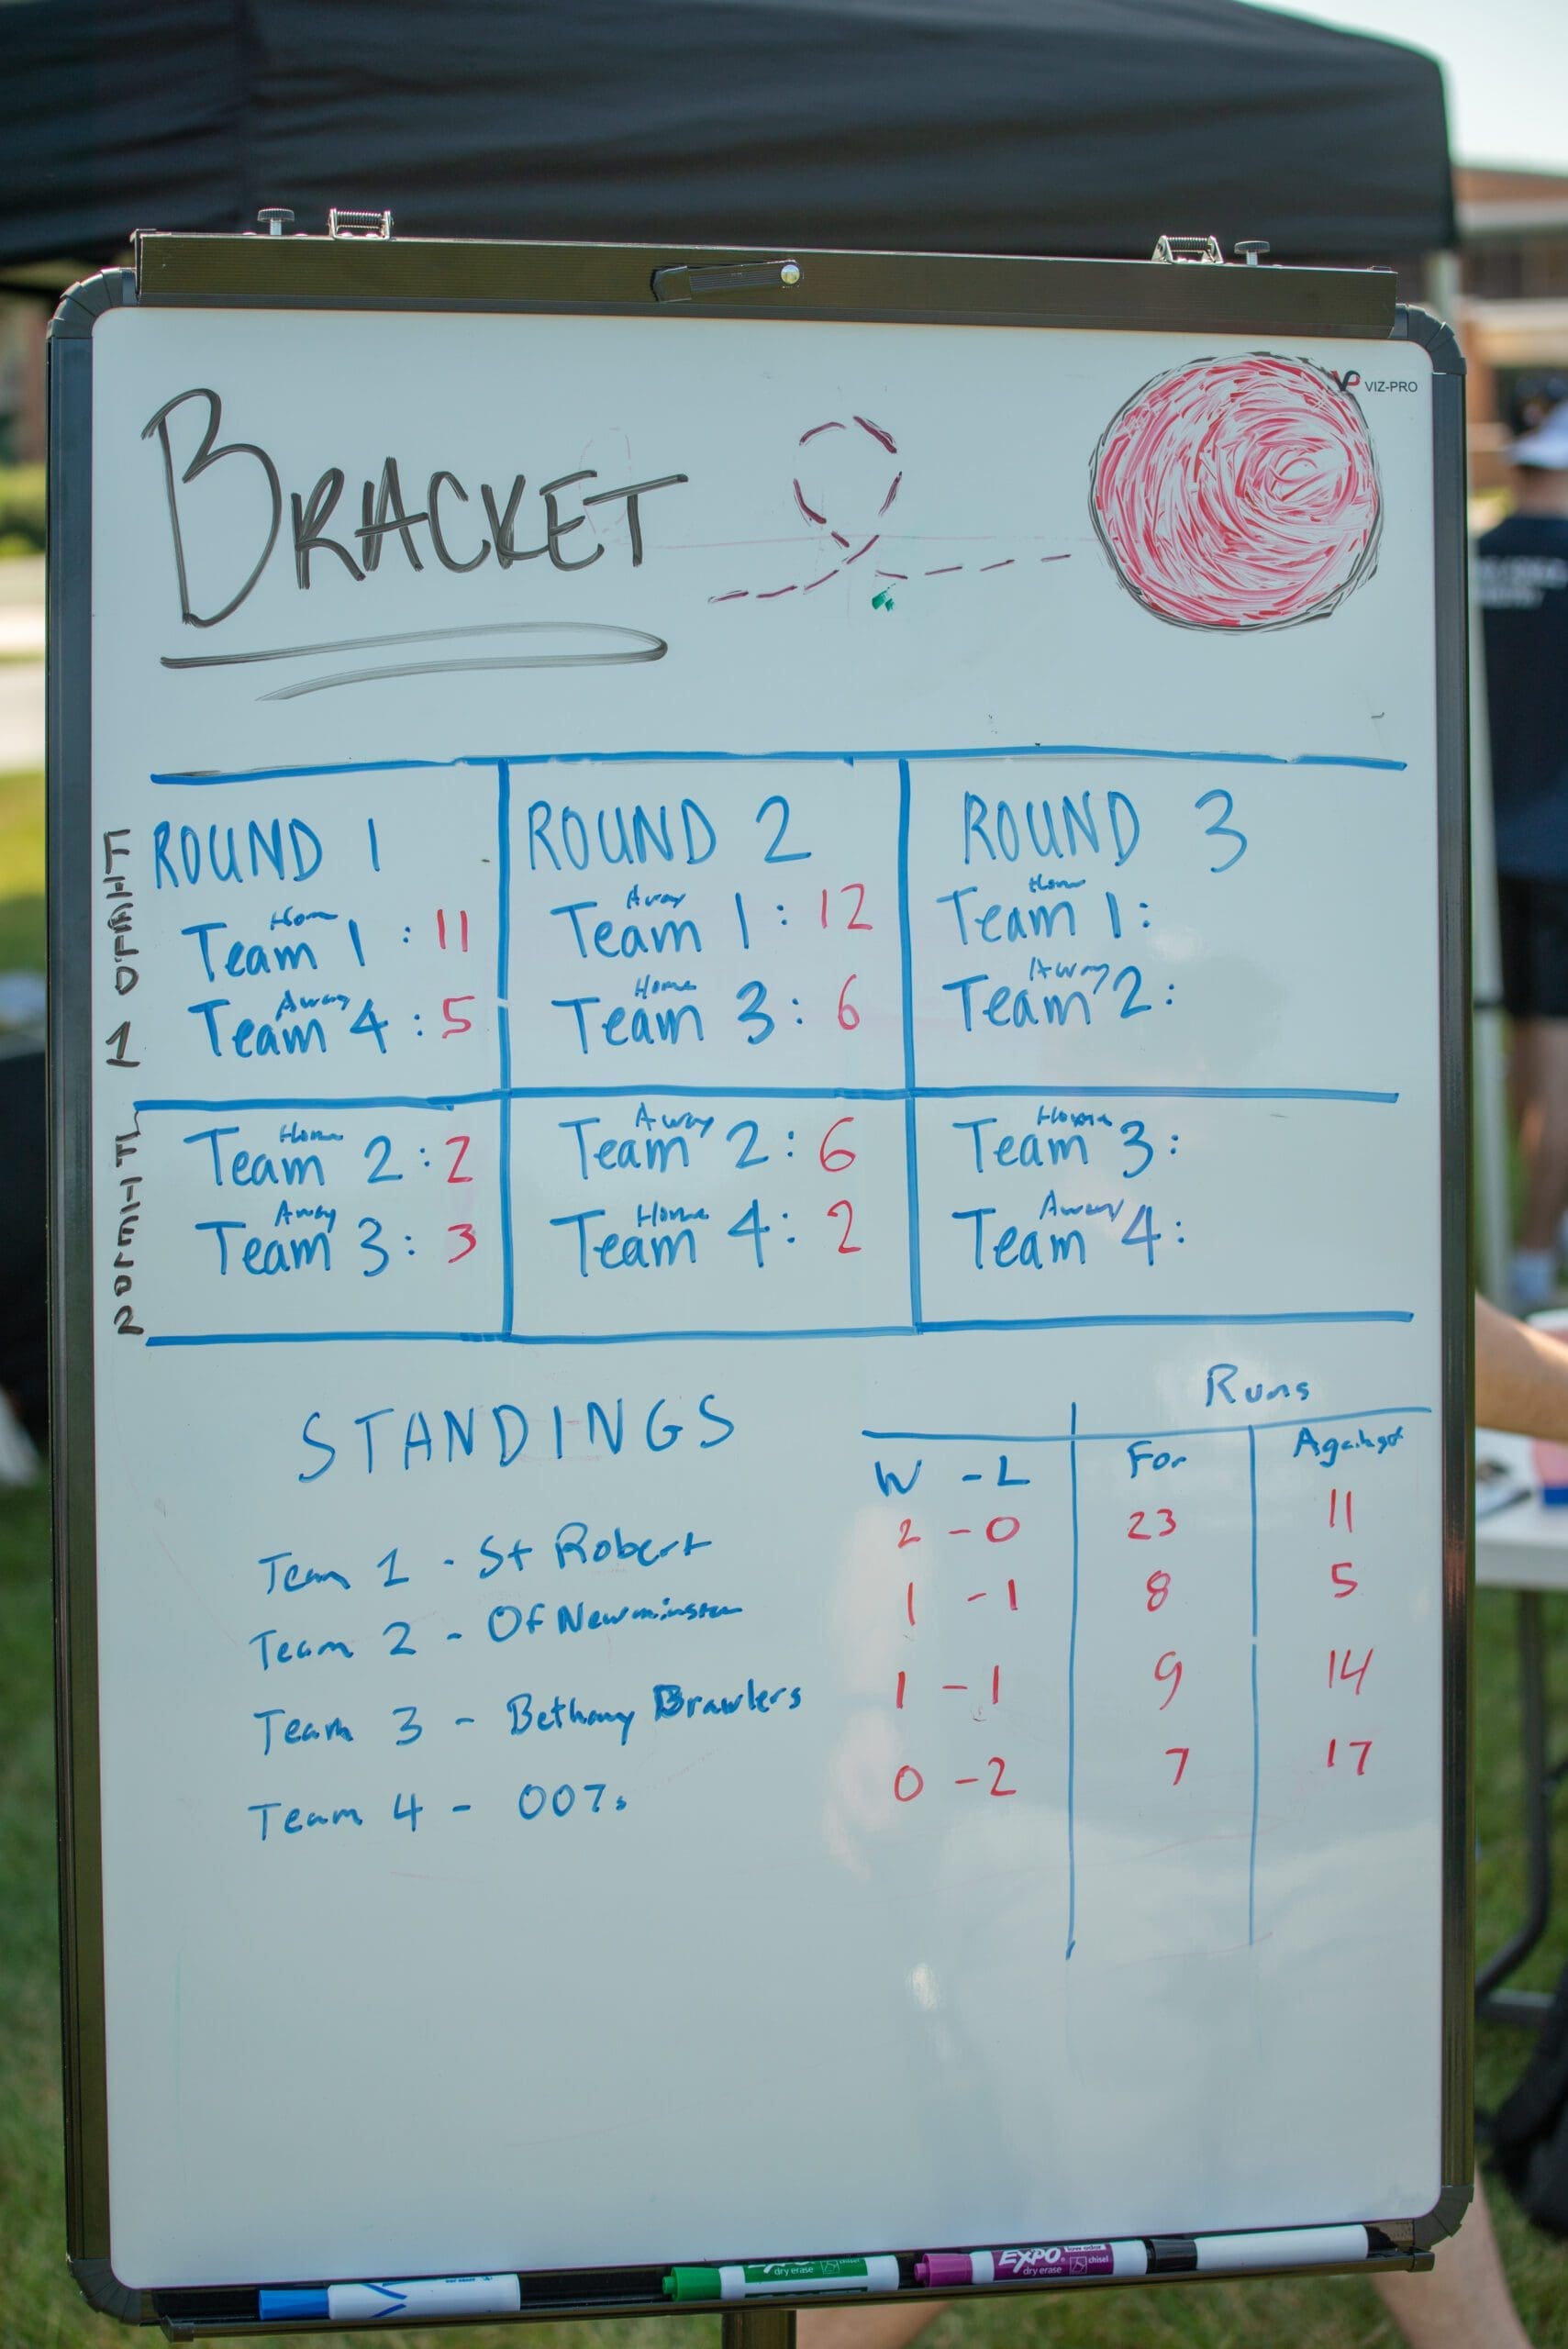 VIZ-PRO
BRACKET
FIELD 1
ROUND 1
Home
Team 1: 11
Away
Team 4: 5
ROUND 2
Away
Team 1: 12
Home
Team 3: 6
ROUND 3
Home
Team 1:
Away
Team 2:
FIELD 2
Home
Team 2: 2
Away
Team 3: 3
Away
Team 2: 6
Home
Team 4: 2
Home
Team 3:
Away
Team 4:
STANDINGS
Runs
W - L For Against
Team 1 - St Robert 2 - 0 23 11
Team 2 - Of Newminster 1 - 1 8 5
Team 3 - Bethany Brawlers 1 - 1 9 14
Team 4 - 007s 0 - 2 7 17
dry erase
EXPO
low odor
dry erase
chisel